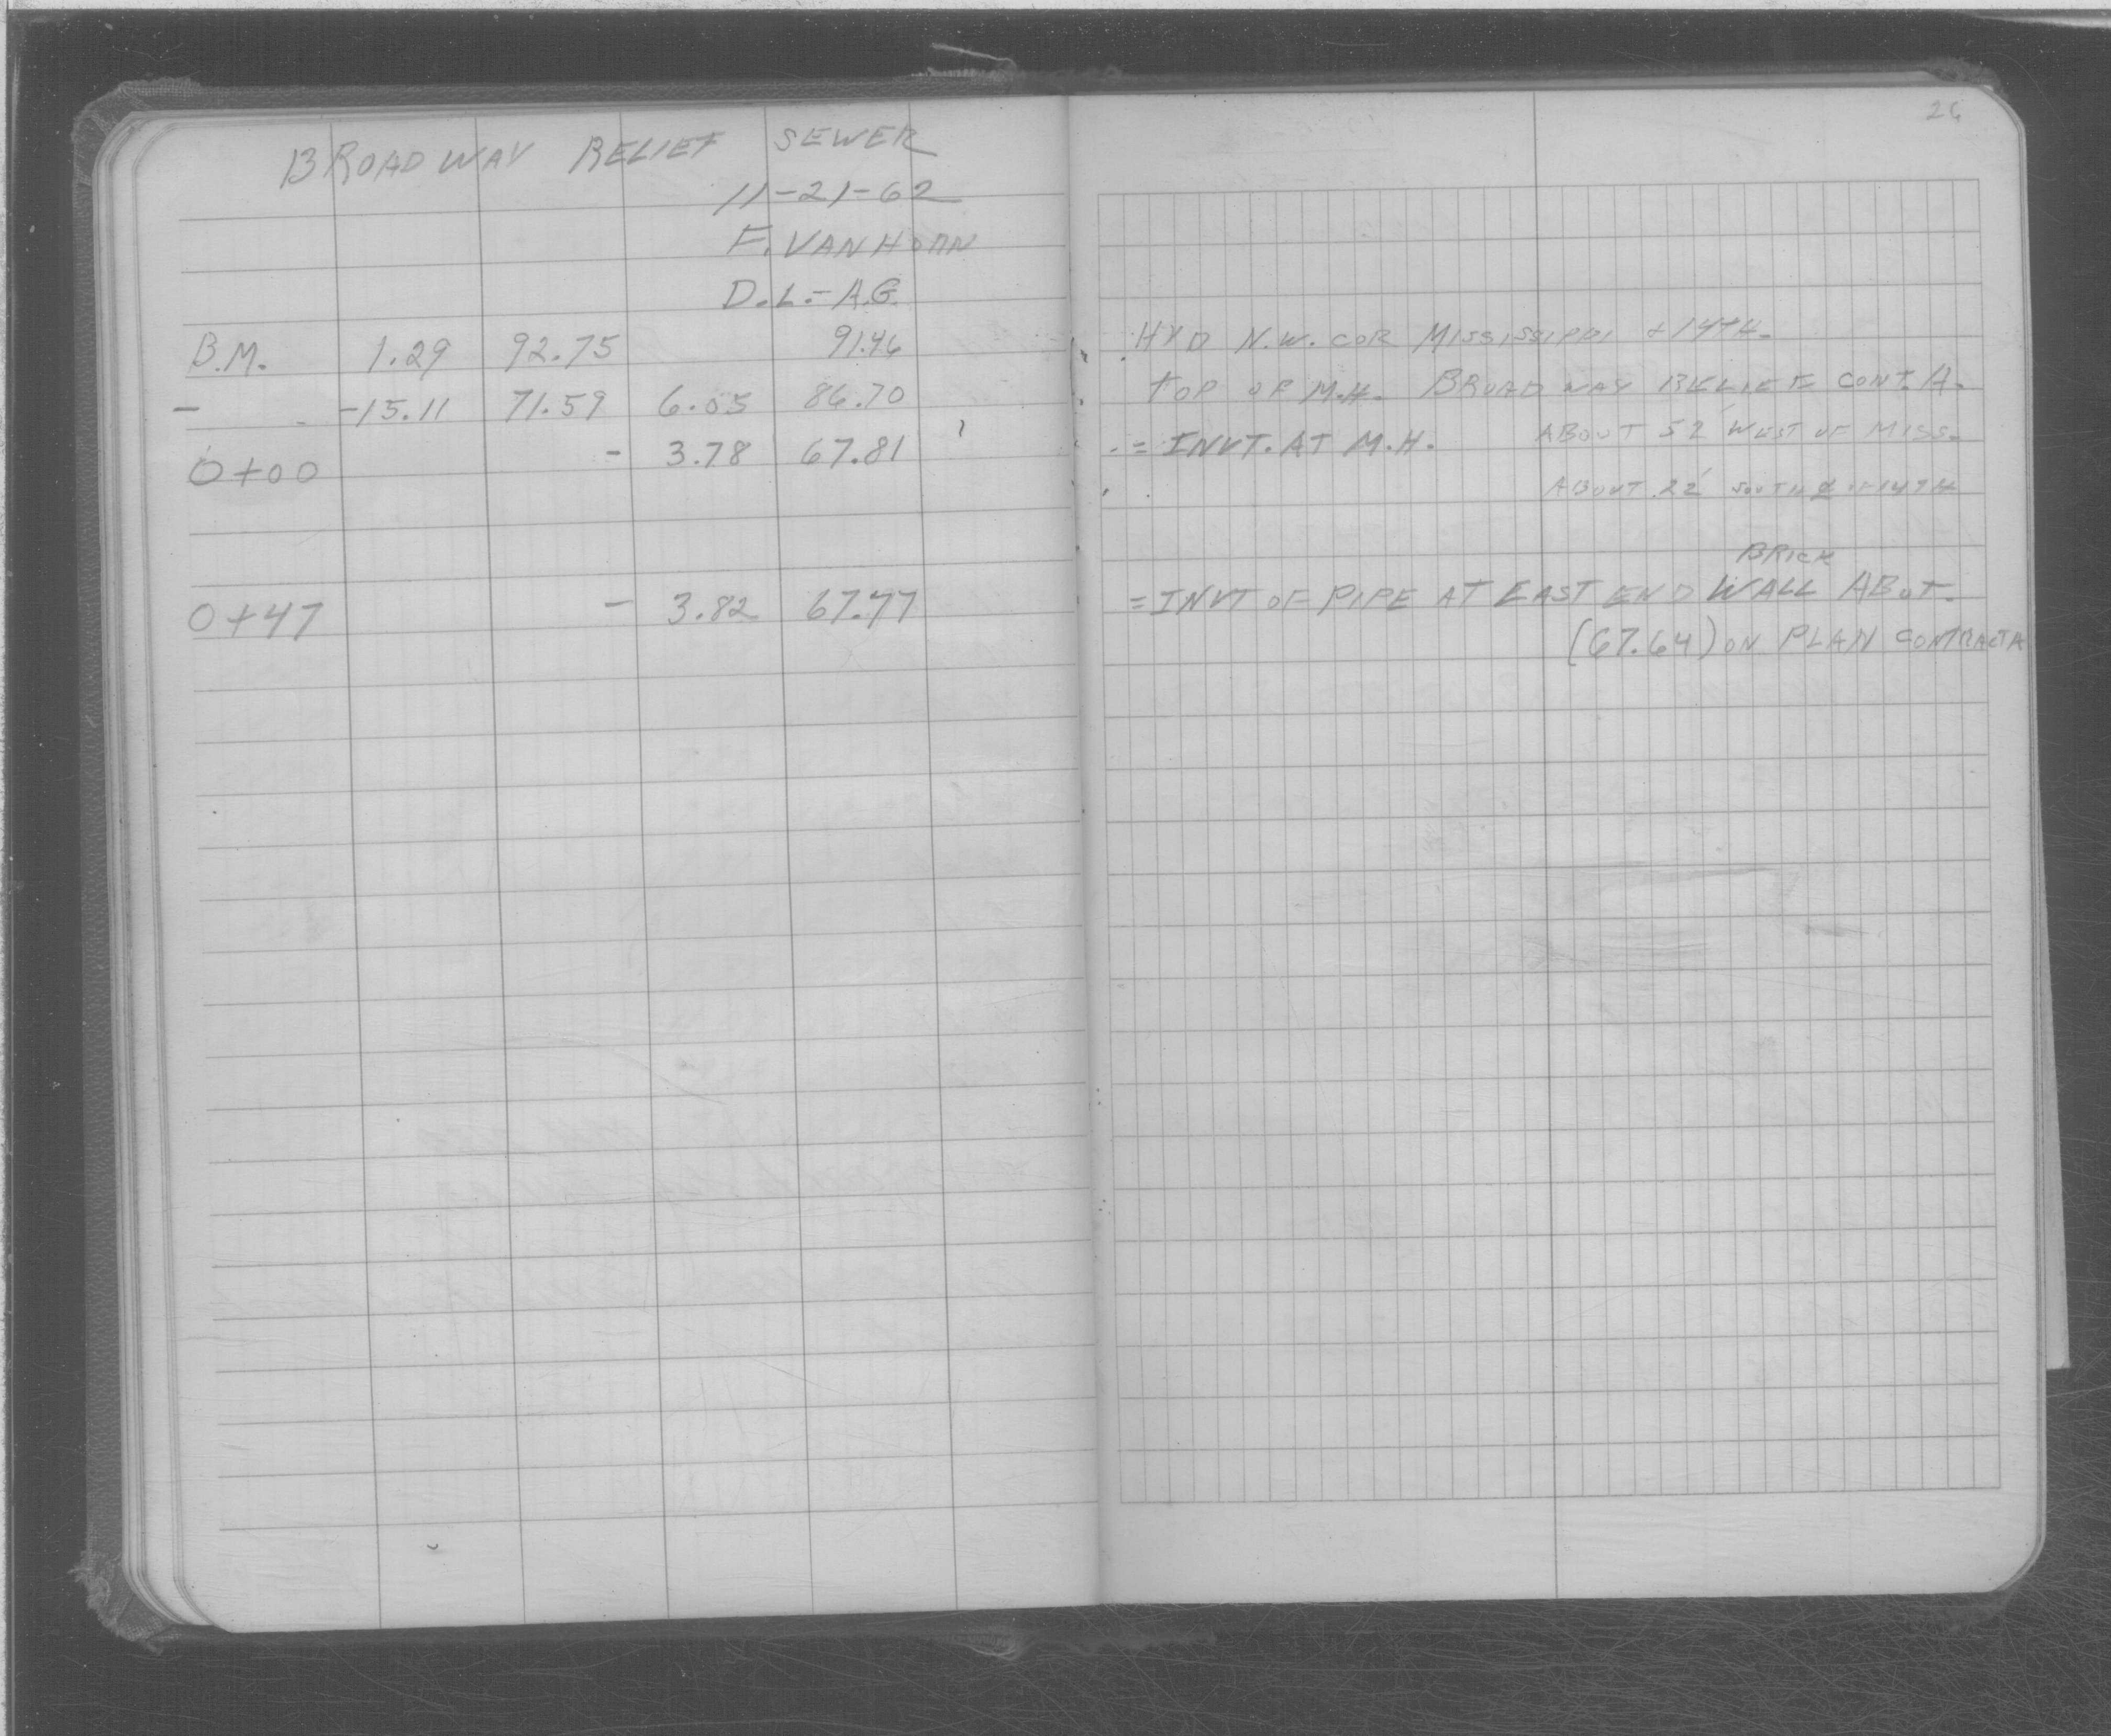 BROADWAY RELIEF SEWER
11-21-62
F. VAN HORN
D.L.-A.G.
B.M. 1.29 92.75 91.46
- -15.11 71.59 6.05 86.70
0+00 - 3.78 67.81
0+47 - 3.82 67.77
26
HYD N.W. COR MISSISSIPPI + 14TH.
TOP OF M.H. BROADWAY RELIEF CONT. A.
= INVT. AT M.H. ABOUT 52' WEST OF MISS.
ABOUT 22' SOUTH 14TH
BRICK
= INVT OF PIPE AT EAST END WALL ABOT.
(67.64) ON PLAN CONTRACT A